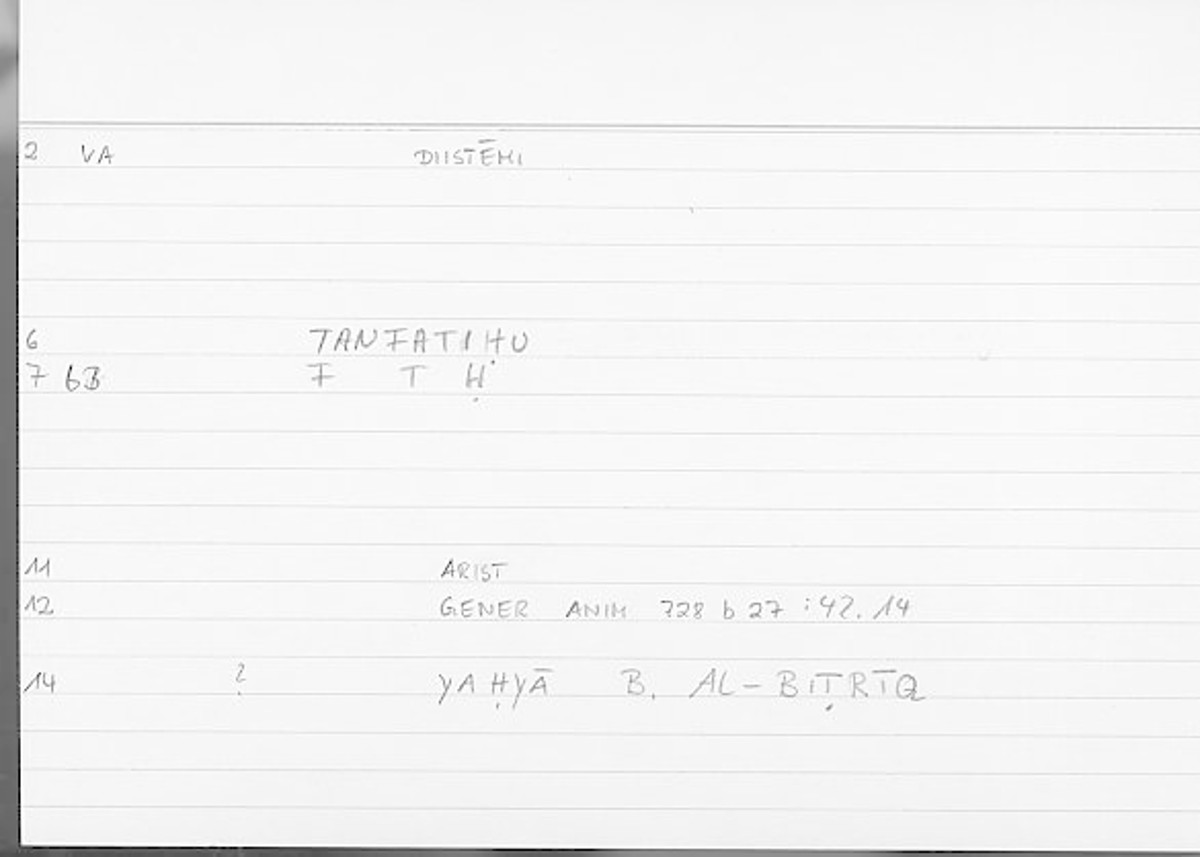 2 VA DIISTĒMI
6 TANFATIḤU
7 6B F T Ḥ
11 ARIST
12 GENER ANIM 728 b 27 : 42. 14
14 ? YAḤYĀ B. AL-BIṬRĪQ